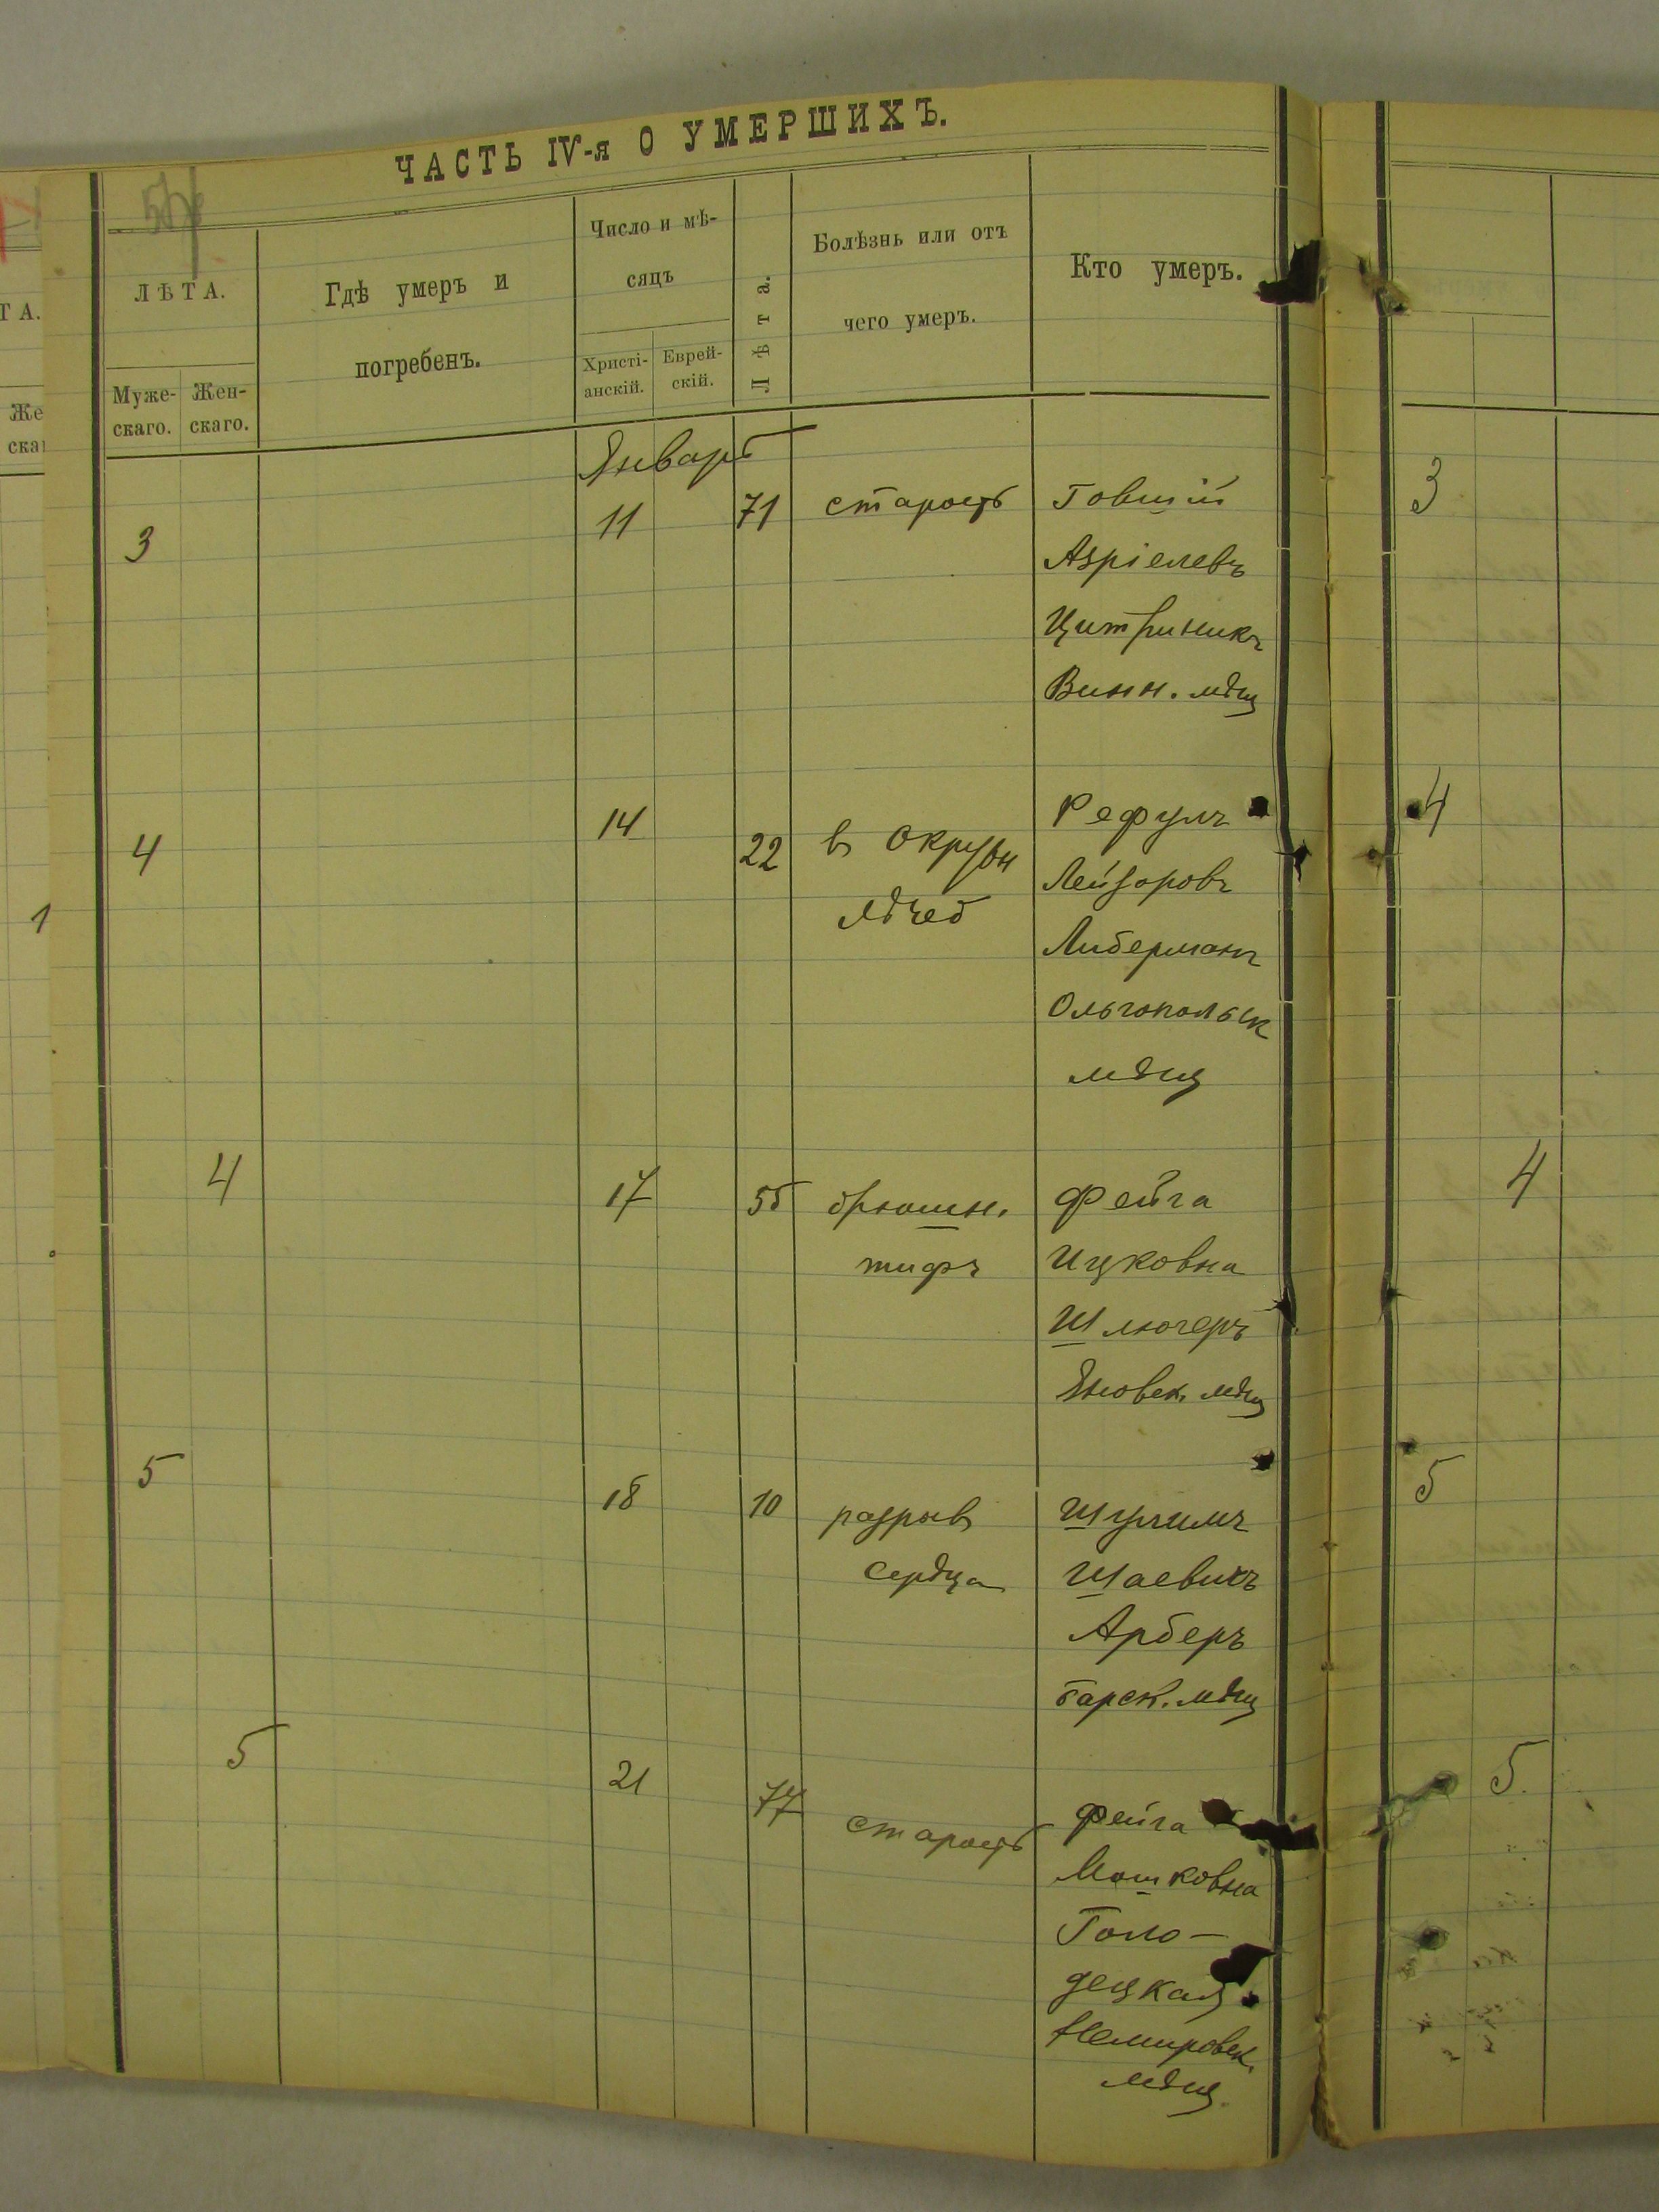 ЧАСТЬ IV-я О УМЕРШИХЪ.
ЛѢТА.
Муже-
скаго.
Жен-
скаго.
Гдѣ умеръ и
погребенъ.
Число и мѣ-
сяцъ
Христі-
анскій.
Еврей-
скій.
Лѣта.
Болѣзнь или отъ
чего умеръ.
Кто умеръ.
Январь
3 11 71 старость
Говшій
Азріелевъ
Цитриникъ
Винн. мѣщ
3
4 14 22 в Окружн
лѣчеб
Рефулъ
Лейзоровъ
Либерманъ
Ольгопольск
мѣщ
4
4 17 55 брюшн.
тифъ
Фейга
Ицковна
Шлюгеръ
Яновск. мѣщ
4
5 18 10 разрыв
сердца
Шулимъ
Шаевичъ
Арберъ
Барск. мѣщ
5
5 21 77 старость
Фейга
Мошковна
Голо-
децкая
Немировск.
мѣщ.
5.
1